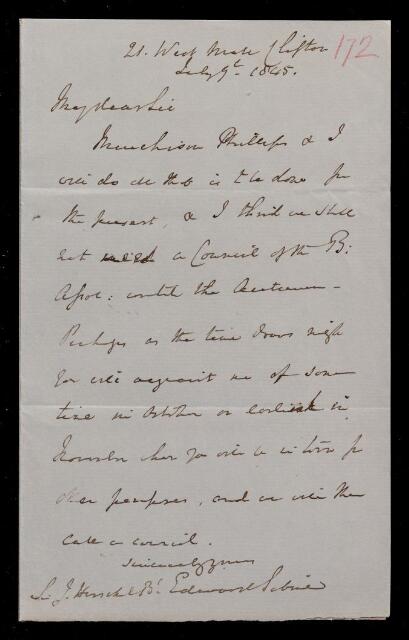 21. West Mall Clifton 172
July 9th 1845.
My dear Sir
Murchison Phillips & I
will do all that is to be done for
the present, & I think we shall
not need a Council of the B:
Assoc: until the Autumn -
Perhaps as the time draws nigh
you will acquaint me of some
time in October or earlier in
November when you will be in town for
other purposes, and we will then
call a council.
Sincerely yours
Sir J. Herschel Bt. Edward Sabine